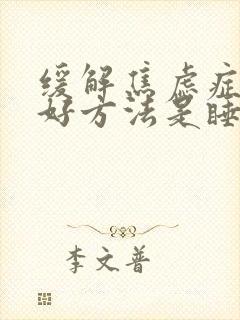 缓解焦虑症
好方法是睡
李文普